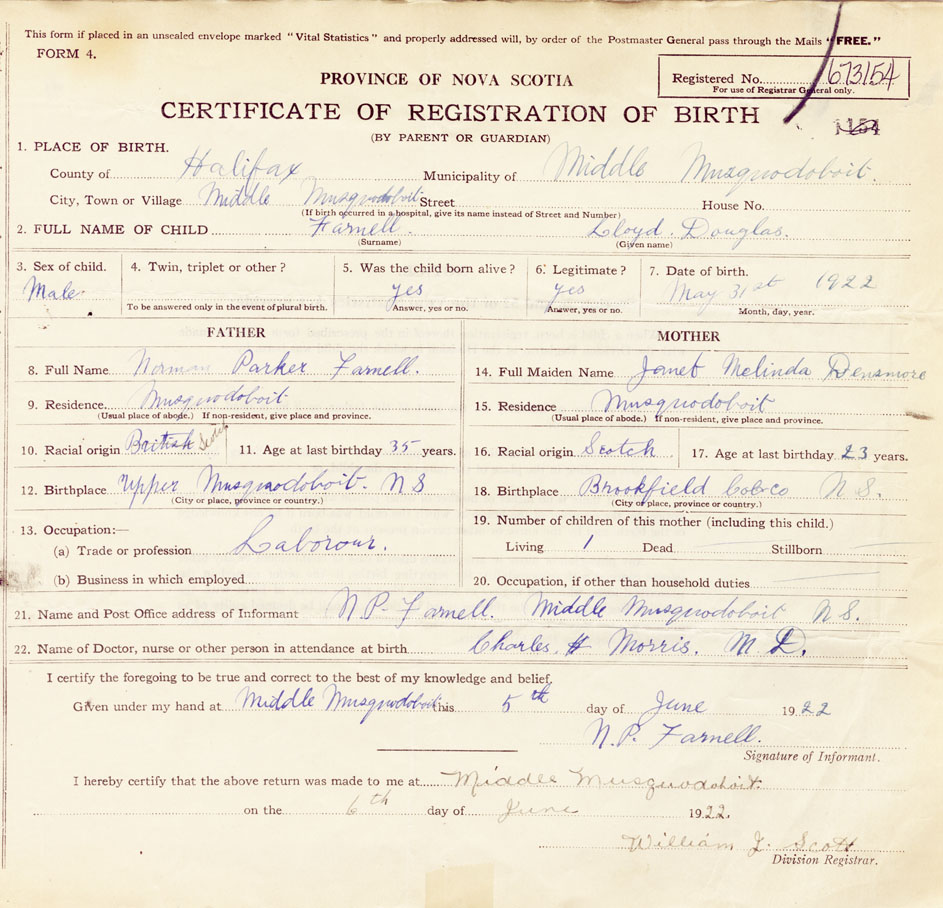 This form if placed in an unsealed envelope marked "Vital Statistics" and properly addressed will, by order of the Postmaster General pass through the Mails "FREE."
FORM 4.
PROVINCE OF NOVA SCOTIA
Registered No. 673154
For use of Registrar General only.
CERTIFICATE OF REGISTRATION OF BIRTH
1154
(BY PARENT OR GUARDIAN)
1. PLACE OF BIRTH.
County of Halifax Municipality of Middle Musquodoboit.
City, Town or Village Middle Musquodoboit Street House No.
(If birth occurred in a hospital, give its name instead of Street and Number)
2. FULL NAME OF CHILD Farnell. Lloyd Douglas.
(Surname) (Given name)
3. Sex of child. 4. Twin, triplet or other? 5. Was the child born alive? 6. Legitimate? 7. Date of birth.
Male yes yes May 31st 1922
To be answered only in the event of plural birth. Answer, yes or no. Answer, yes or no. Month, day, year.
FATHER MOTHER
8. Full Name Norman Parker Farnell. 14. Full Maiden Name Janet Melinda Densmore
9. Residence Musquodoboit 15. Residence Musquodoboit
(Usual place of abode.) If non-resident, give place and province. (Usual place of abode.) If non-resident, give place and province.
10. Racial origin British 11. Age at last birthday 35 years. 16. Racial origin Scotch 17. Age at last birthday 23 years.
12. Birthplace Upper Musquodoboit. N S 18. Birthplace Brookfield Col-co N S.
(City or place, province or country.) (City or place, province or country.)
13. Occupation:— 19. Number of children of this mother (including this child.)
(a) Trade or profession Laborour. Living 1 Dead Stillborn
(b) Business in which employed 20. Occupation, if other than household duties
21. Name and Post Office address of Informant N.P. Farnell. Middle Musquodoboit N S.
22. Name of Doctor, nurse or other person in attendance at birth Charles. H Morris. M D.
I certify the foregoing to be true and correct to the best of my knowledge and belief.
Given under my hand at Middle Musquodoboit this 5th day of June 1922
N.P. Farnell.
Signature of Informant.
I hereby certify that the above return was made to me at Middle Musquodoboit.
on the 6th day of June 1922.
William J. Scott
Division Registrar.